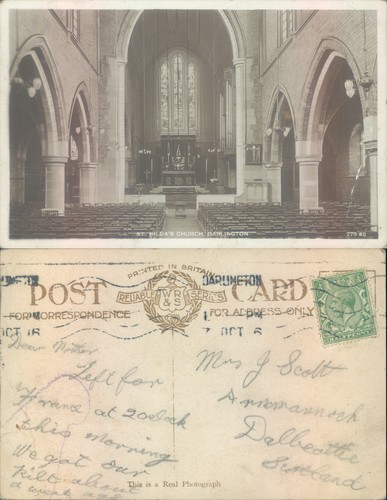 ST. HILDA'S CHURCH, DARLINGTON
PRINTED IN BRITAIN
POST CARD
RELIABLE WR&S SERIES
FOR CORRESPONDENCE
FOR ADDRESS ONLY
DARLINGTON
OCT 16
OCT 16
Dear Mother
Left for
France at 2 oclock
this morning
We got our
kilt about
a week ago
Mrs J Scott
Dalbeattie
Scotland
This is a Real Photograph